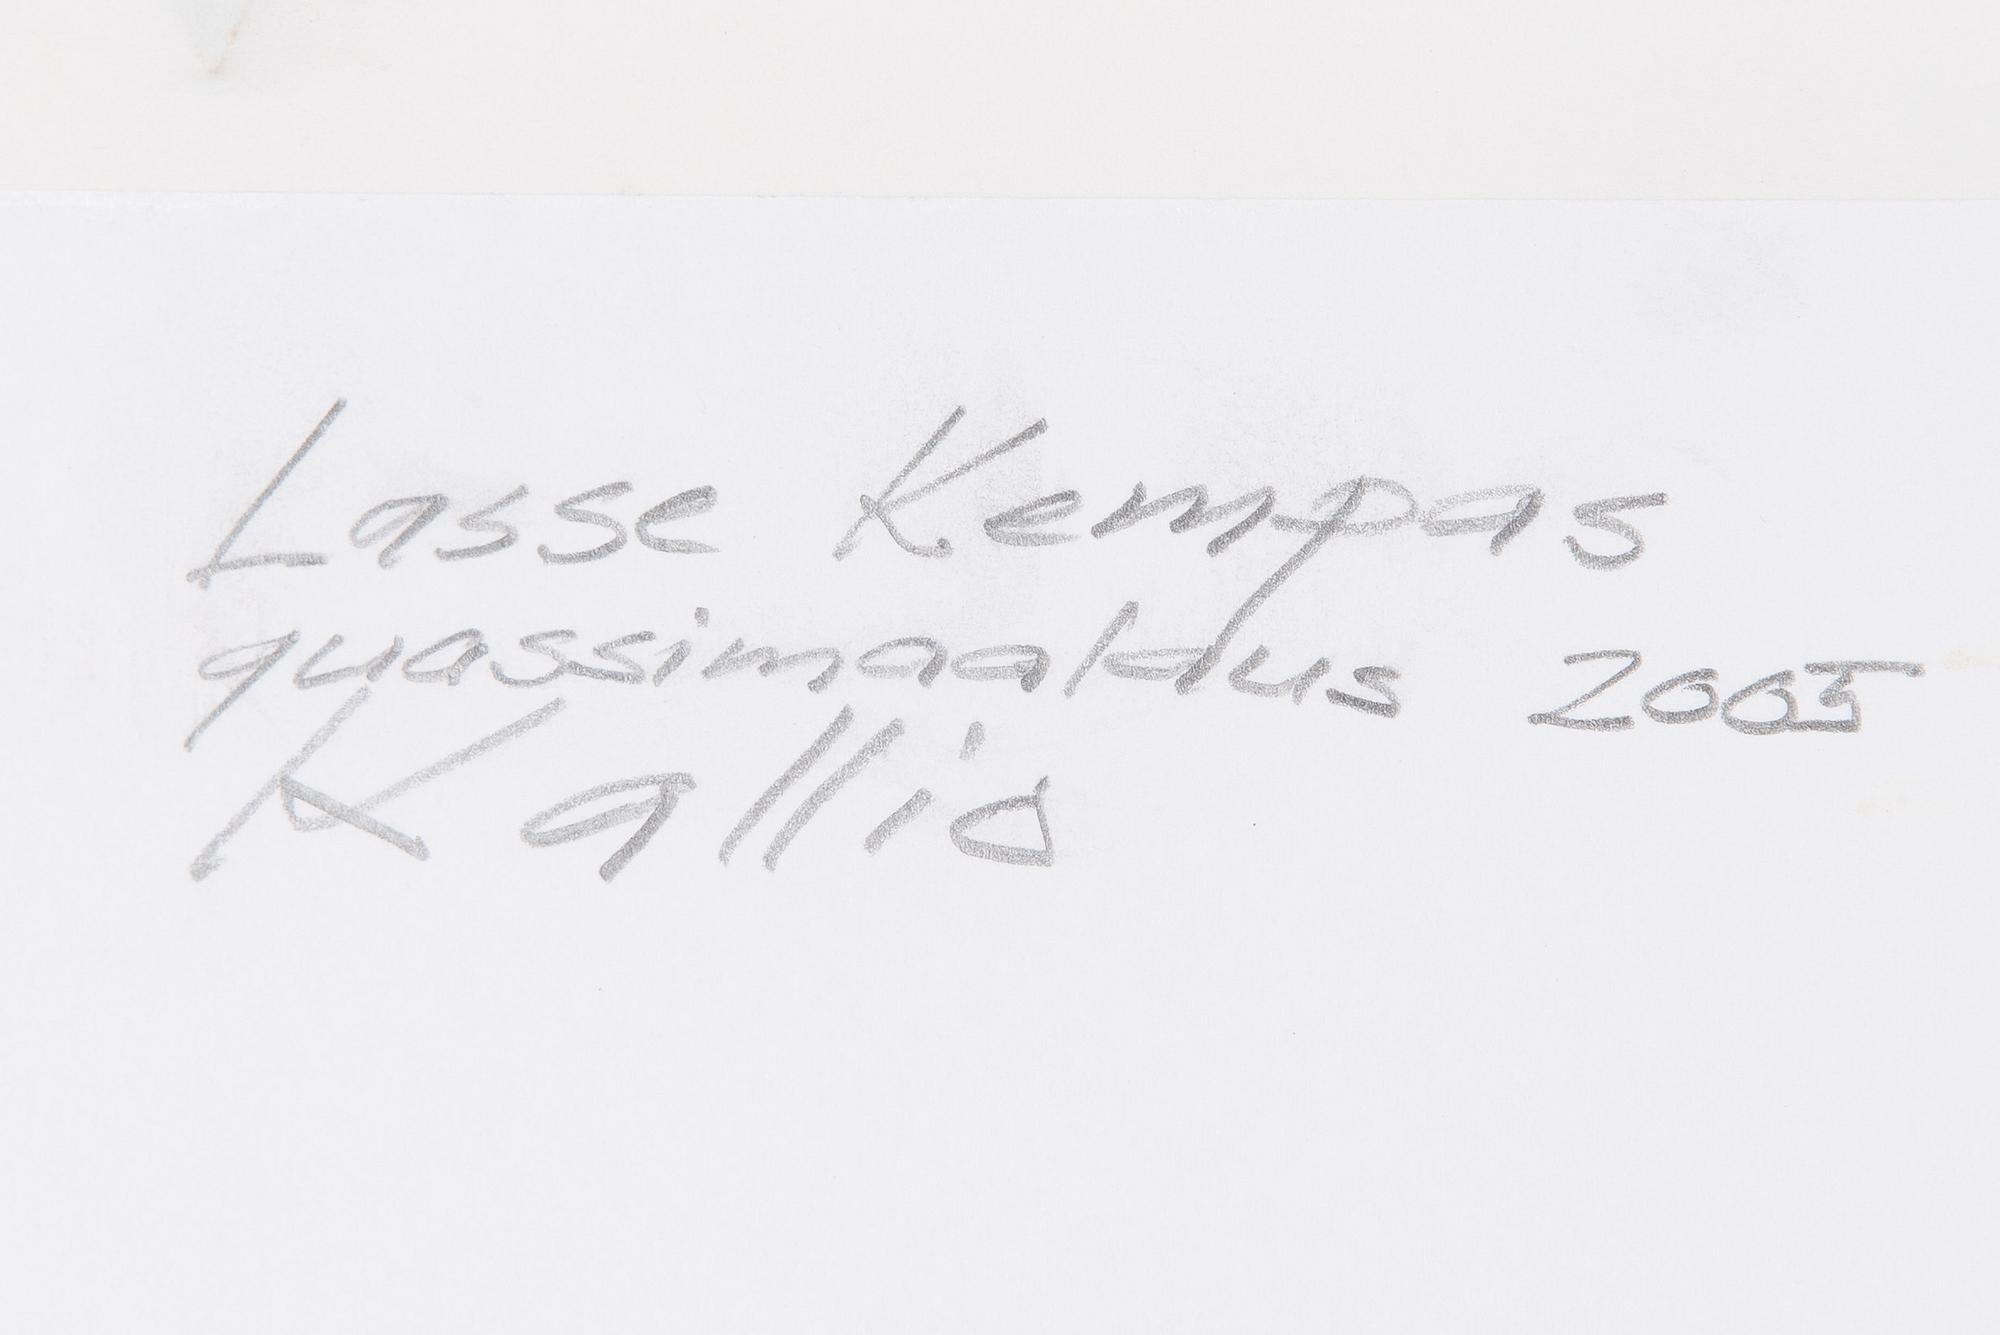 Lasse Kempas
quassimaalaus 2005
Kallio